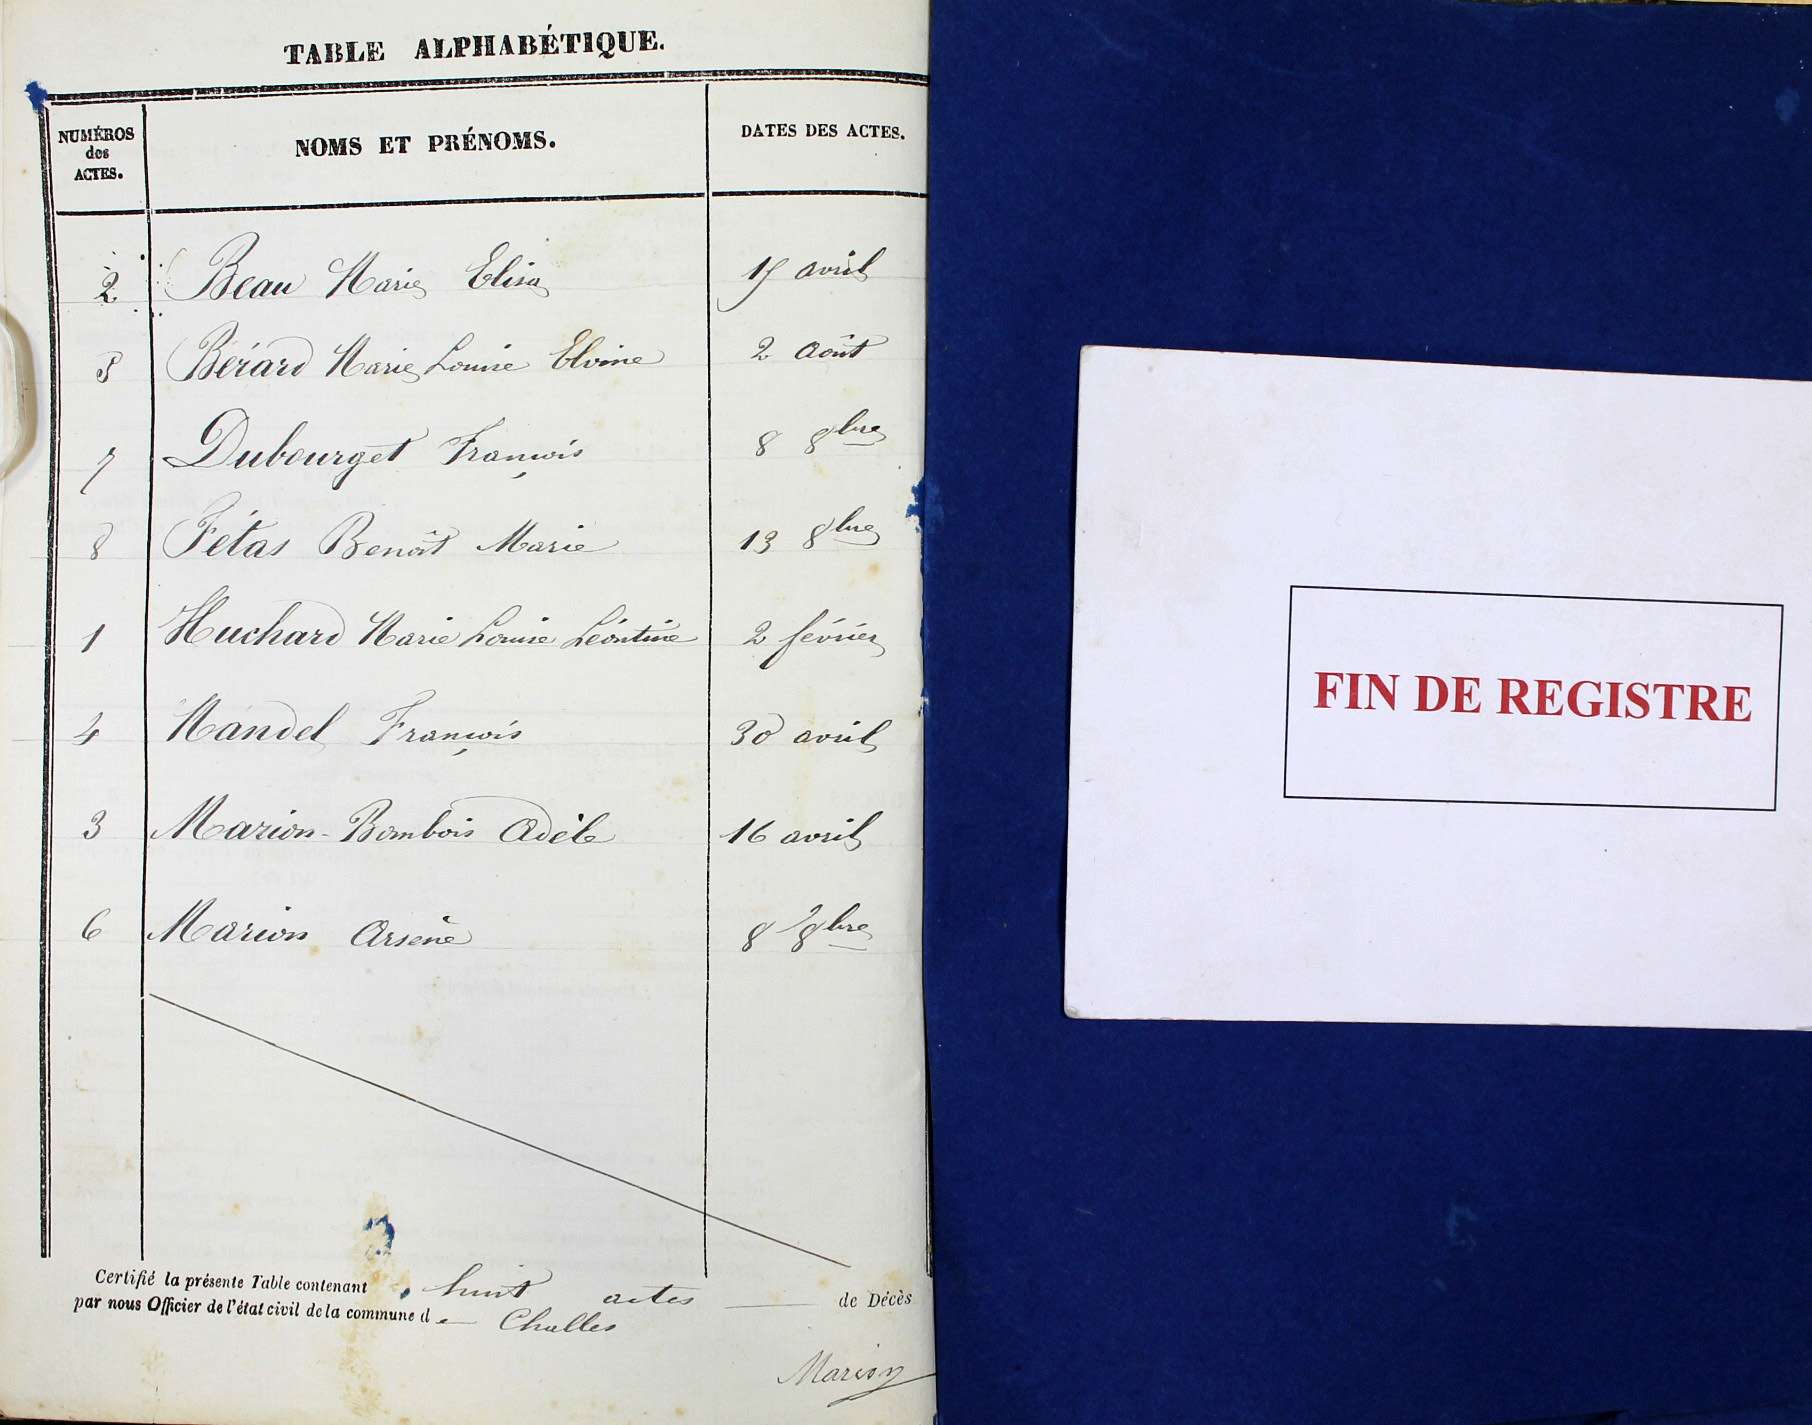 TABLE ALPHABÉTIQUE.
NUMÉROS des ACTES. NOMS ET PRÉNOMS. DATES DES ACTES.
2 Beau Marie Elisa avril
5 Bérard Marie Louise Elvine 2 Août
7 Dubourget François 8 8bre
8 Fétas Benoît Marie 13 8bre
1 Huchard Marie Louise Léontine 2 février
4 Mandel François 30 avril
3 Marion-Bombois Adèle 16 avril
6 Marion Arsène 8 8bre
Certifié la présente Table contenant huit actes de Décès
par nous Officier de l'état civil de la commune de Challes
Marion
FIN DE REGISTRE